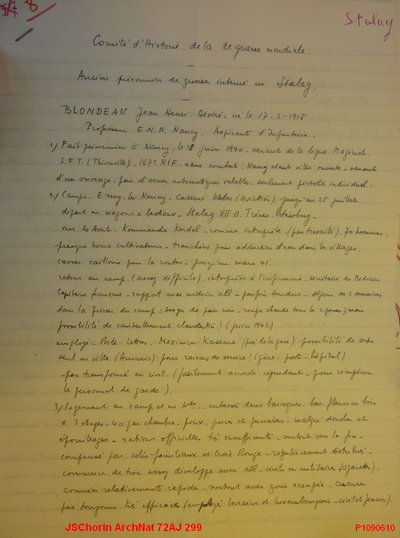 8
Stalag
Comité d'Histoire de la 2e guerre mondiale.
Ancien prisonnier de guerre interné en Stalag.
BLONDEAU Jean Henri Désiré - né le 17-2-1915
Professeur E.N.P. Nancy. Aspirant d'Infanterie.
1/ Fait prisonnier à Nancy, le 18 juin 1940. venant de la ligne Maginot
S.F.T. (Thionville). 167e R.I.F. sans combat. Nancy étant ville ouverte - venant
d'un ouvrage - pas d'armes automatiques valables. seulement pistolet individuel.
2/ Camps. Essey-les-Nancy - Caserne Kléber (aviation). jusqu'au 25 juillet.
départ en wagons à bestiaux - Stalag XII D. Trèves. Petrisberg.
vers 20 Août. Kommando Kordel - comme interprète - (pas travaillé). 70 hommes,
presque tous cultivateurs - tranchées pour adduction d'eau dans les villages.
casser cailloux pour les routes - jusqu'en mars 41.
retour au camp. - interprète à l'infirmerie - secrétaire du médecin
capitaine français - rapport avec médecin all - parfois tendus - séjour de semaines
dans la prison du camp - (soupe chaude tous les jours) mais
possibilité de ravitaillement clandestin ! (juin 1942).
employé - Poste - lettres. Maximin Kaserne (près de la gare). possibilité de sortir
seul en ville (Ausweis) pour raisons de service ! (gare. poste - hôpital)
pas transformé en civil. (facilement accordé cependant, pour récupérer
le personnel de garde).
3/ logement au camp et en - entassés dans baraques, bas-flancs en bois
à 3 étages - 40 par chambre, poux, puces et punaises - malgré douches et
épouillages. - rations officielles très insuffisantes, surtout vers la fin -
compensé par colis familiaux et Croix Rouge - régulièrement distribués -
commerce de troc assez développé avec all. civils ou militaires (cigarettes).
courrier relativement rapide - surtout avec zone occupée - censure
pas toujours très efficace (employés lorrains et luxembourgeois - civil et femmes).
JSChorin ArchNat 72AJ 299
P1090610